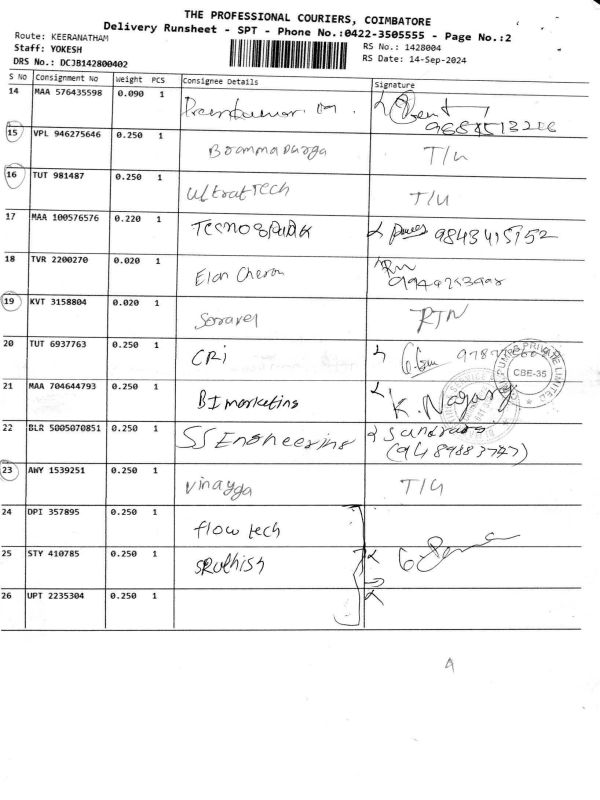 THE PROFESSIONAL COURIERS, COIMBATORE
Delivery Runsheet - SPT - Phone No.:0422-3505555 - Page No.:2
Route: KEERANATHAM
Staff: YOKESH
DRS No.: DCJB142800402
RS No.: 1428004
RS Date: 14-Sep-2024
S No Consignment No Weight PCS Consignee Details Signature
14 MAA 576435598 0.090 1
15 VPL 946275646 0.250 1 T/u
16 TUT 981487 0.250 1 ultratTech T/u
17 MAA 100576576 0.220 1 TECNOSPARK
18 TVR 2200270 0.020 1 Elan Cheran
19 KVT 3158804 0.020 1 RTN
20 TUT 6937763 0.250 1 CRi
CBE-35
21 MAA 704644793 0.250 1 BI marketing K. Nagaraj
22 BLR 5005070851 0.250 1 SS Engneering
23 AWY 1539251 0.250 1 vinayga T/u
24 DPI 357895 0.250 1 flow tech
25 STY 410785 0.250 1 SRuthish
26 UPT 2235304 0.250 1